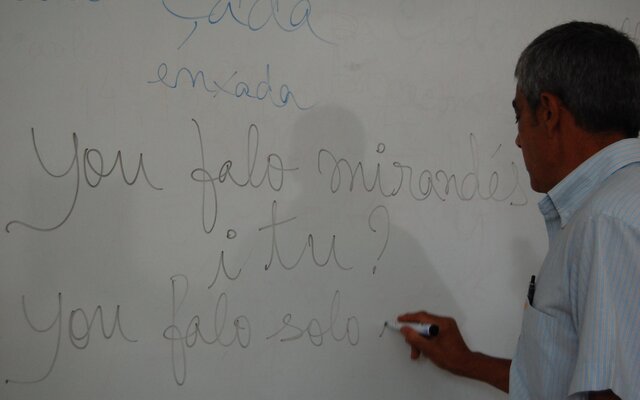 çada
enxada
You falo mirandés
i tu?
You falo solo